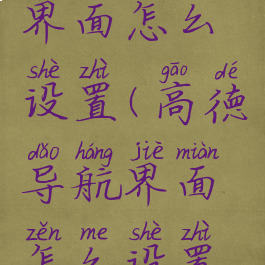 界面怎么
shè zhì gāo dé
设置(高德
dǎo háng jiè miàn
导航界面
zěn me shè zhì
怎么设置